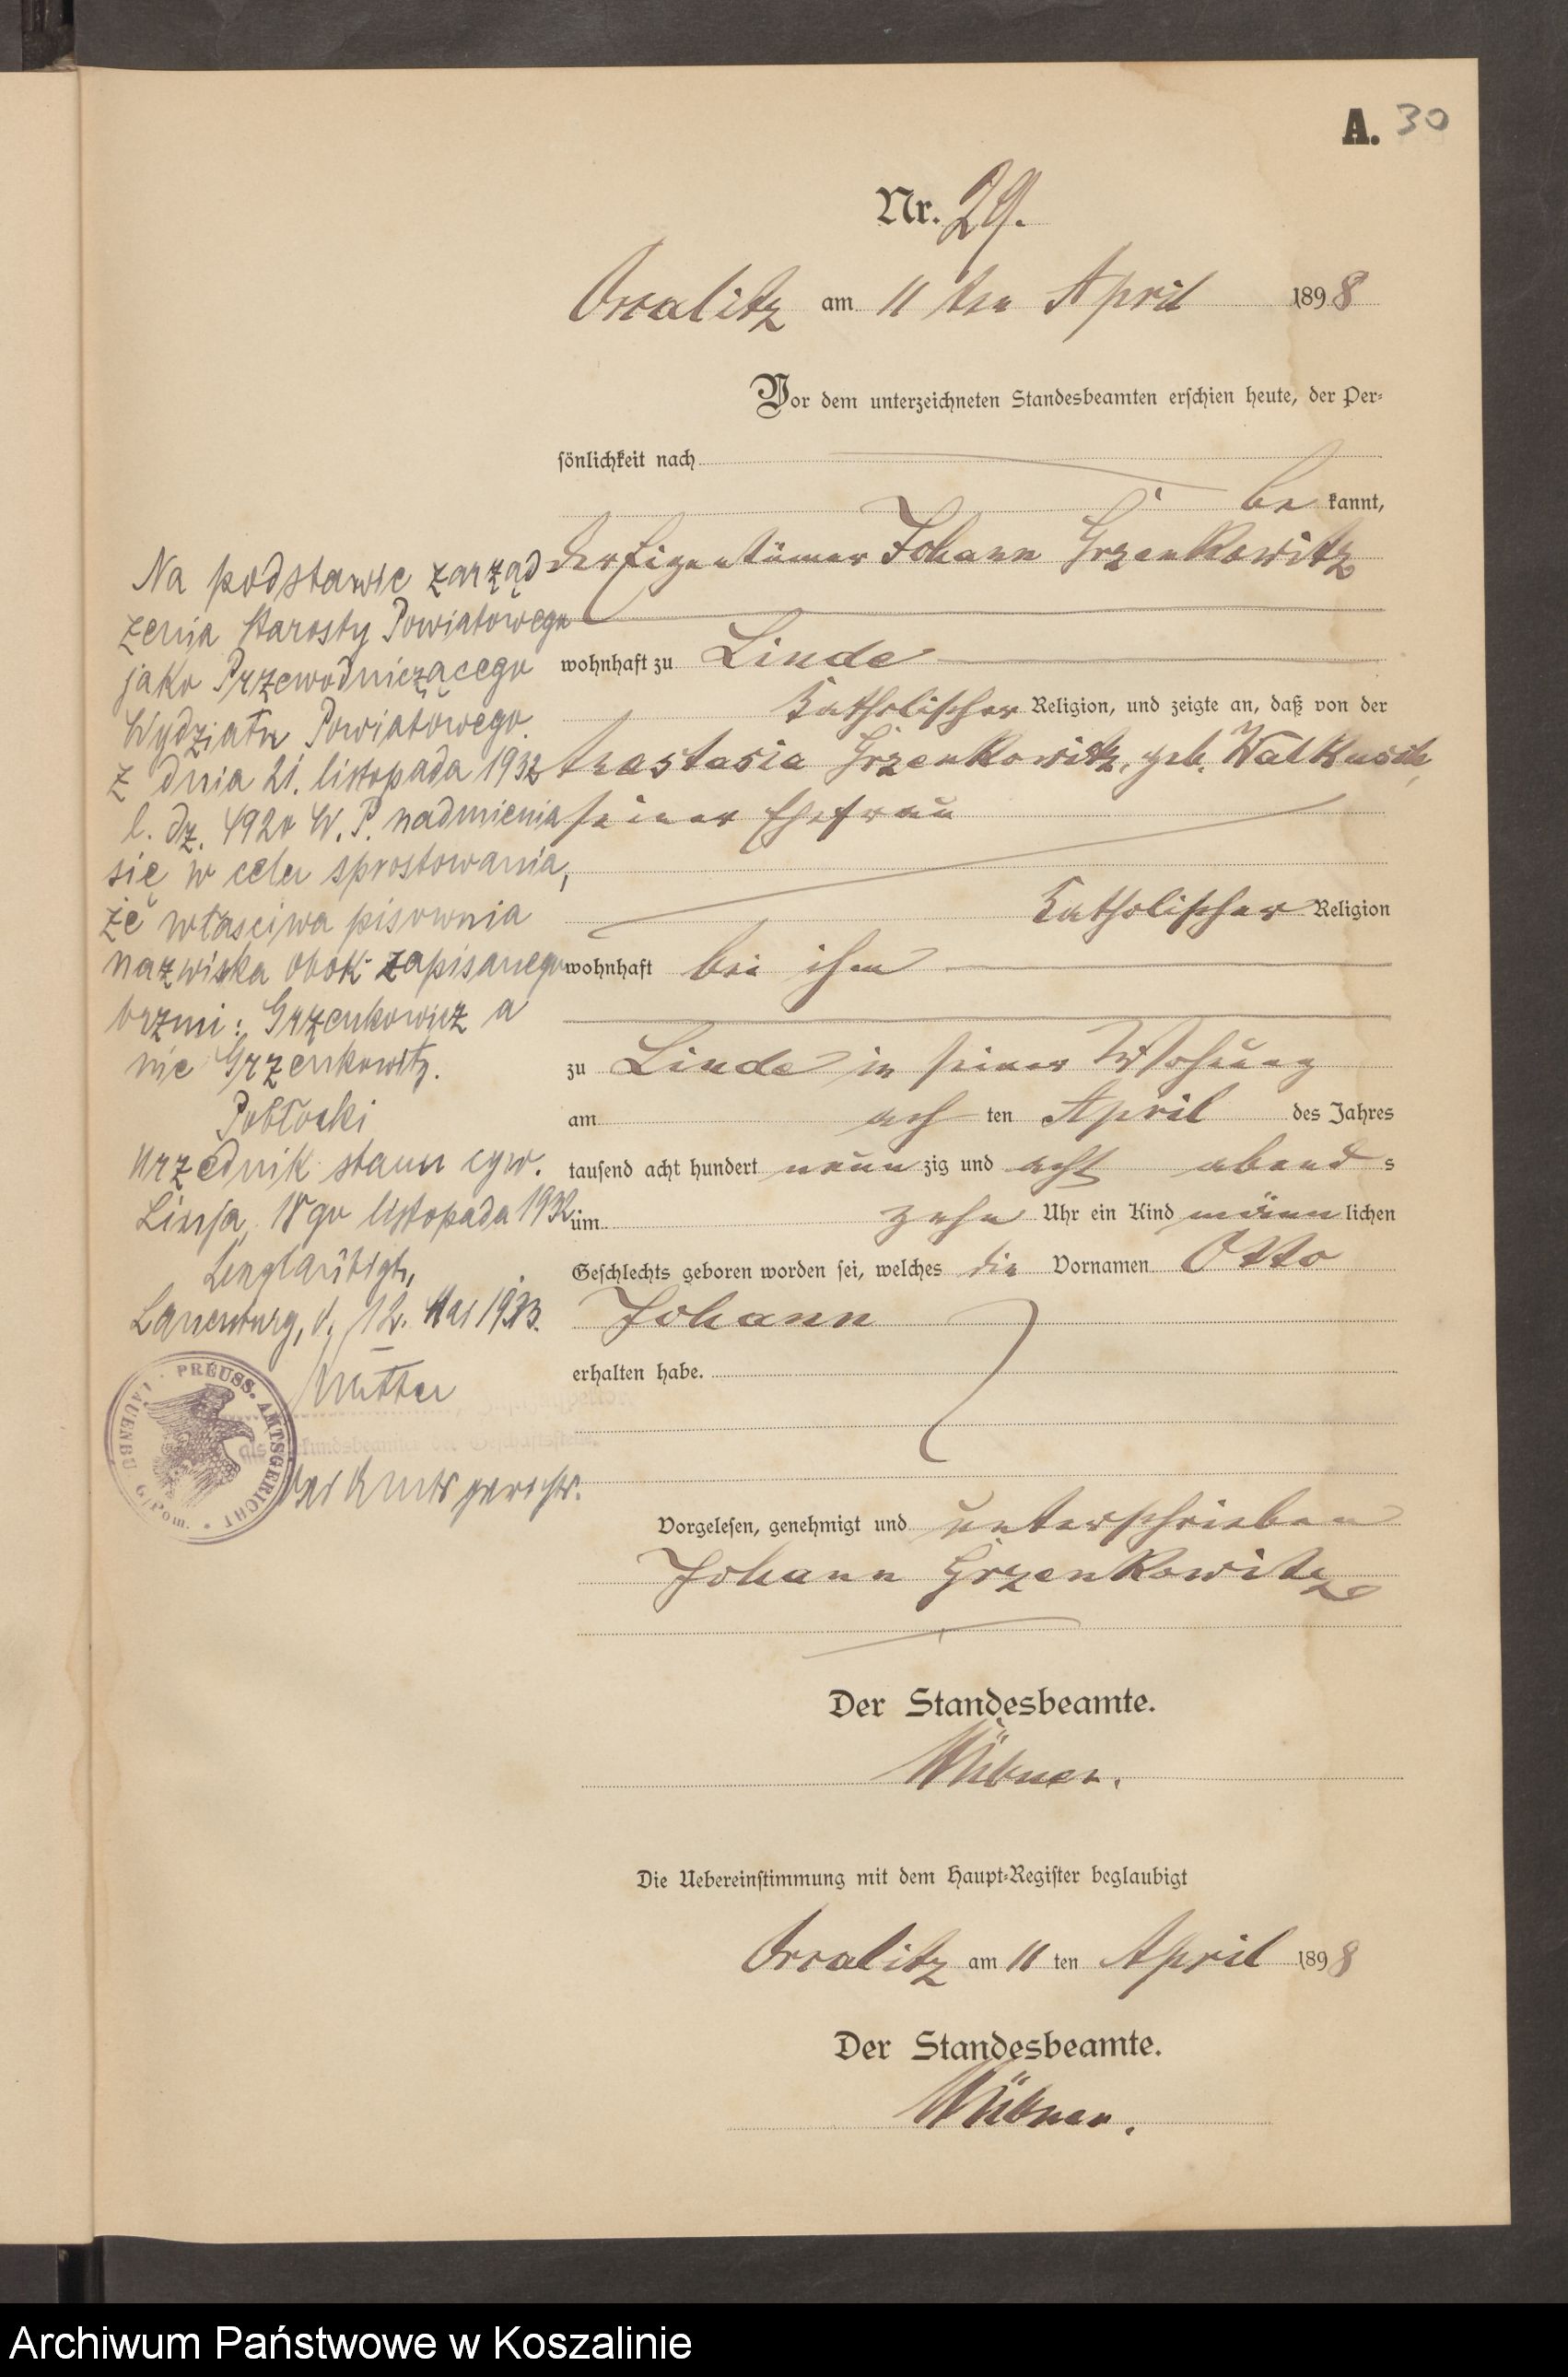 A. 30
Nr. 29.
Occalitz am 11 ten April 1898
Vor dem unterzeichneten Standesbeamten erschien heute, der Per-
sönlichkeit nach
be kannt,
der Eigentümer Johann Grzenkowitz
wohnhaft zu Linde
katholischer Religion, und zeigte an, daß von der
Anastasia Grzenkowitz, geb. Walkusch,
seiner Ehefrau
katholischer Religion
wohnhaft bei ihm
zu Linde in seiner Wohnung
am ach ten April des Jahres
tausend acht hundert neun zig und acht abend s
um zehn Uhr ein Kind männlichen
Geschlechts geboren worden sei, welches die Vornamen Otto
Johann
erhalten habe.
Vorgelesen, genehmigt und unterschrieben
Johann Grzenkowitz
Der Standesbeamte.
Die Uebereinstimmung mit dem Haupt-Register beglaubigt
Occalitz am 11 ten April 1898
Der Standesbeamte.
Na podstawie zarząd
zenia Starosty Powiatowego
jako Przewodniczącego
Wydziału Powiatowego
z dnia 21. listopada 1932
l. dz. 4920 W. P. nadmienia
się w celu sprostowania,
że właściwa pisownia
nazwiska obok zapisanego
brzmi: Grzenkowicz a
nie Grzenkowitz.
Pobłocki
urzędnik stanu cyw.
Linja, listopada 1932
Lauenburg, d. 12. Mai 1933.
PREUSS. AMTSGERICHT
LAUENBURG i/Pom.
des Amtsgerichts.
Archiwum Państwowe w Koszalinie